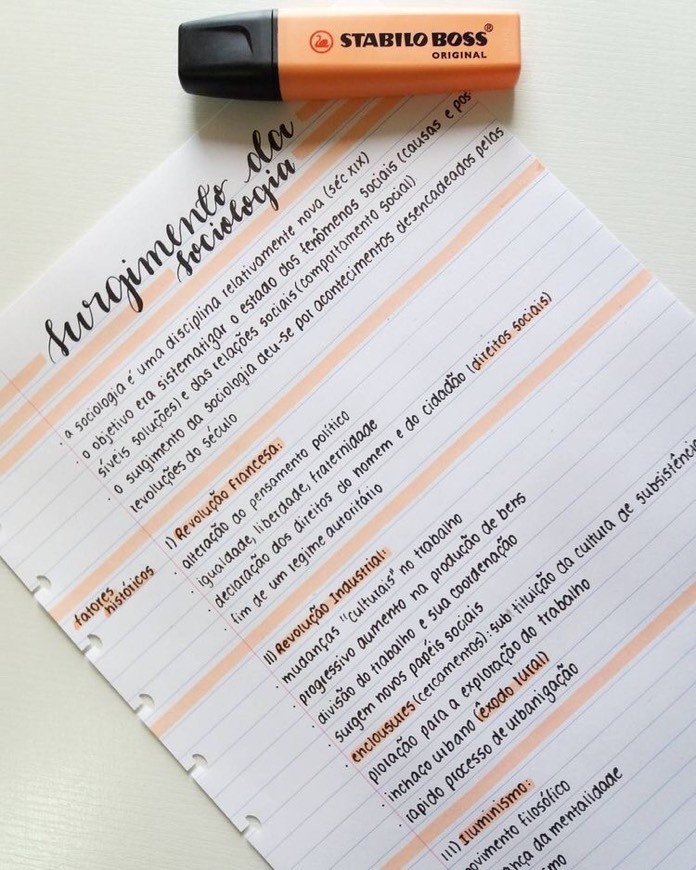 STABILO BOSS®
ORIGINAL
surgimento da
sociologia
· a sociologia é uma disciplina relativamente nova (séc XIX)
· o objetivo era sistematizar o estado dos fenômenos sociais (causas e pos-
síveis soluções) e das relações sociais (comportamento social)
· o surgimento da sociologia deu-se por acontecimentos desencadeados pelas
revoluções do século
fatores
históricos
I) Revolução Francesa:
· alteração do pensamento político
· igualdade, liberdade, fraternidade
· declaração dos direitos do homem e do cidadão (direitos sociais)
· fim de um regime autoritário
II) Revolução Industrial:
· mudanças "culturais" no trabalho
· progressivo aumento na produção de bens
· divisão do trabalho e sua coordenação
· surgem novos papéis sociais
· enclousures (cercamentos): substituição da cultura de subsistência
ploração para a exploração do trabalho
· inchaço urbano (êxodo rural)
· rápido processo de urbanização
III) Iluminismo:
movimento filosófico
da mentalidade